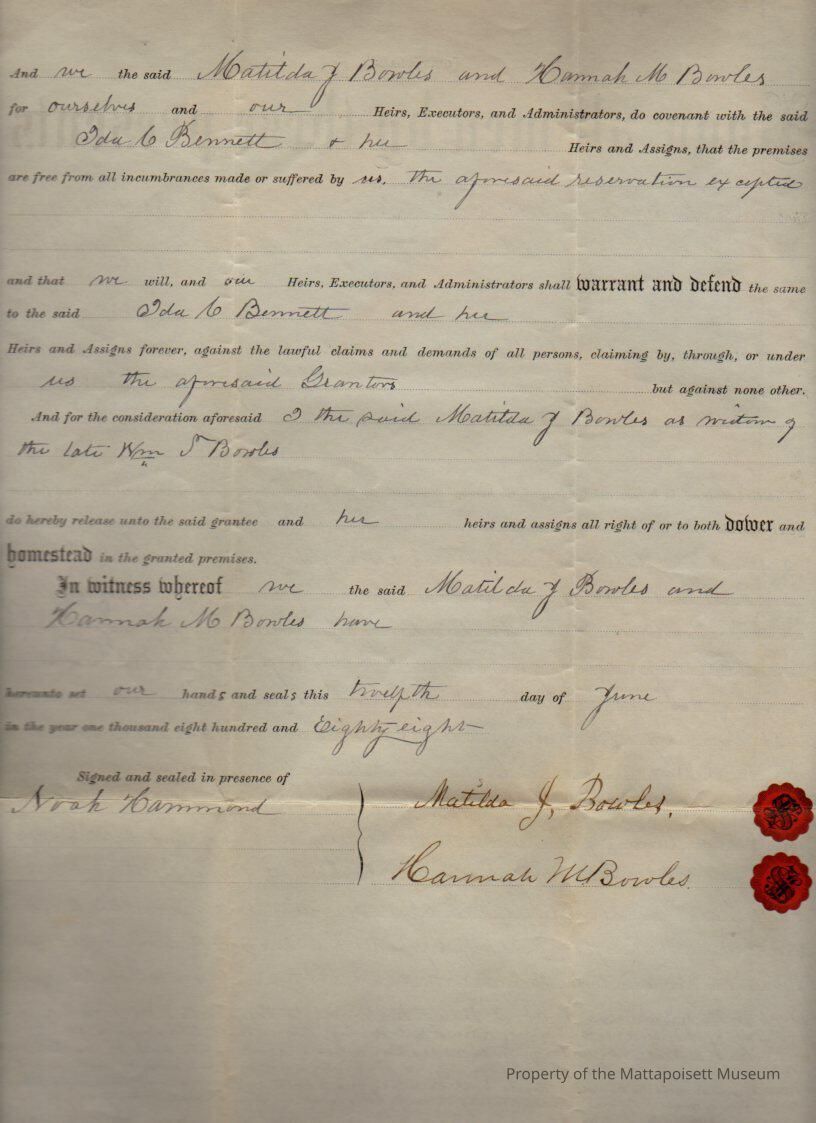 And we the said Matilda J Bowles and Hannah M Bowles
for ourselves and our Heirs, Executors, and Administrators, do covenant with the said
Ida C Bennett & her Heirs and Assigns, that the premises
are free from all incumbrances made or suffered by us, the aforesaid reservation excepted
and that we will, and our Heirs, Executors, and Administrators shall warrant and defend the same
to the said Ida C Bennett and her
Heirs and Assigns forever, against the lawful claims and demands of all persons, claiming by, through, or under
us the aforesaid Grantors but against none other.
And for the consideration aforesaid I the said Matilda J Bowles as widow of
the late Wm S Bowles
do hereby release unto the said grantee and her heirs and assigns all right of or to both dower and
homestead in the granted premises.
In witness whereof we the said Matilda J Bowles and
Hannah M Bowles have
hereunto set our hands and seals this twelfth day of June
in the year one thousand eight hundred and Eighty eight
Signed and sealed in presence of
Noah Hammond
Matilda J, Bowles,
Hannah M Bowles.
Property of the Mattapoisett Museum